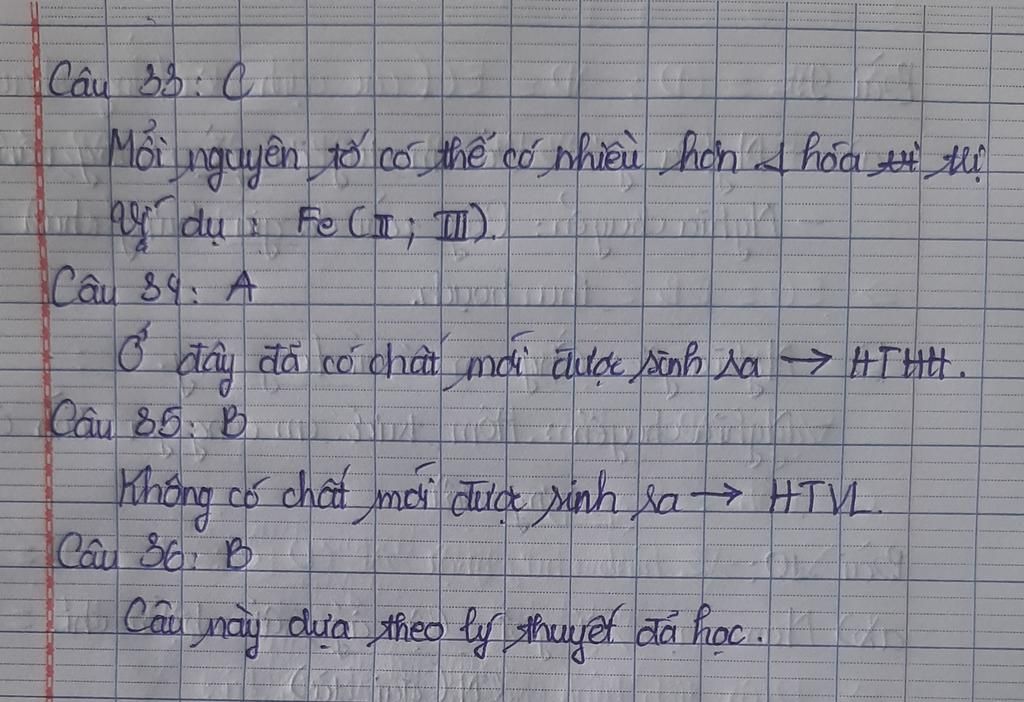 Câu 33: C
Mỗi nguyên tố có thể có nhiều hơn 1 hóa trị
Ví dụ: Fe (II; III).
Câu 34: A
Ở đây đã có chất mới được sinh ra → HTHH.
Câu 35: B
Không có chất mới được sinh ra → HTVL.
Câu 36: B
Câu này dựa theo lý thuyết đã học.